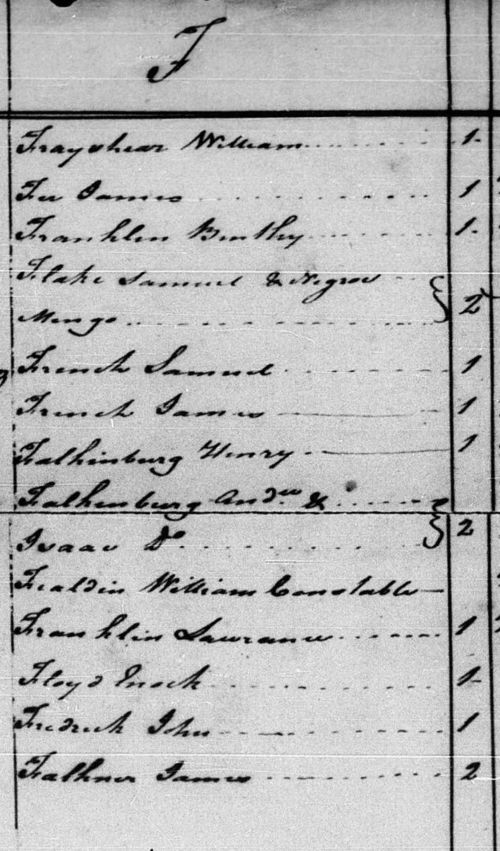 F
Frayshear William 1
Fee James 1
Franklin Benthy 1
Flake Samuel & Negroe
Mengo 2
French Samuel 1
French James 1
Falkinburg Henry 1
Falkenburg Andw &
Isaac Do 2
Fealdin William Constable
Franklin Lawrance 1
Floyd Enock 1
Fredrick John 1
Falkner James 2